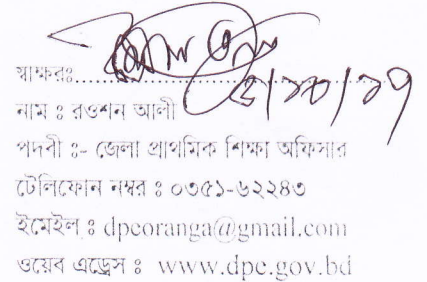 স্বাক্ষরঃ........................................
নাম ঃ রওশন আলী
পদবী ঃ- জেলা প্রাথমিক শিক্ষা অফিসার
টেলিফোন নম্বর ঃ ০৩৫১-৬২২৪৩
ইমেইল ঃ dpeoranga@gmail.com
ওয়েব এড্রেস ঃ www.dpe.gov.bd